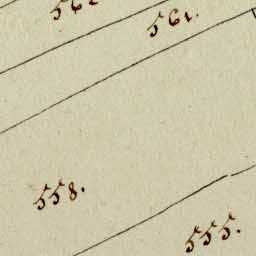 561.
558.
555.